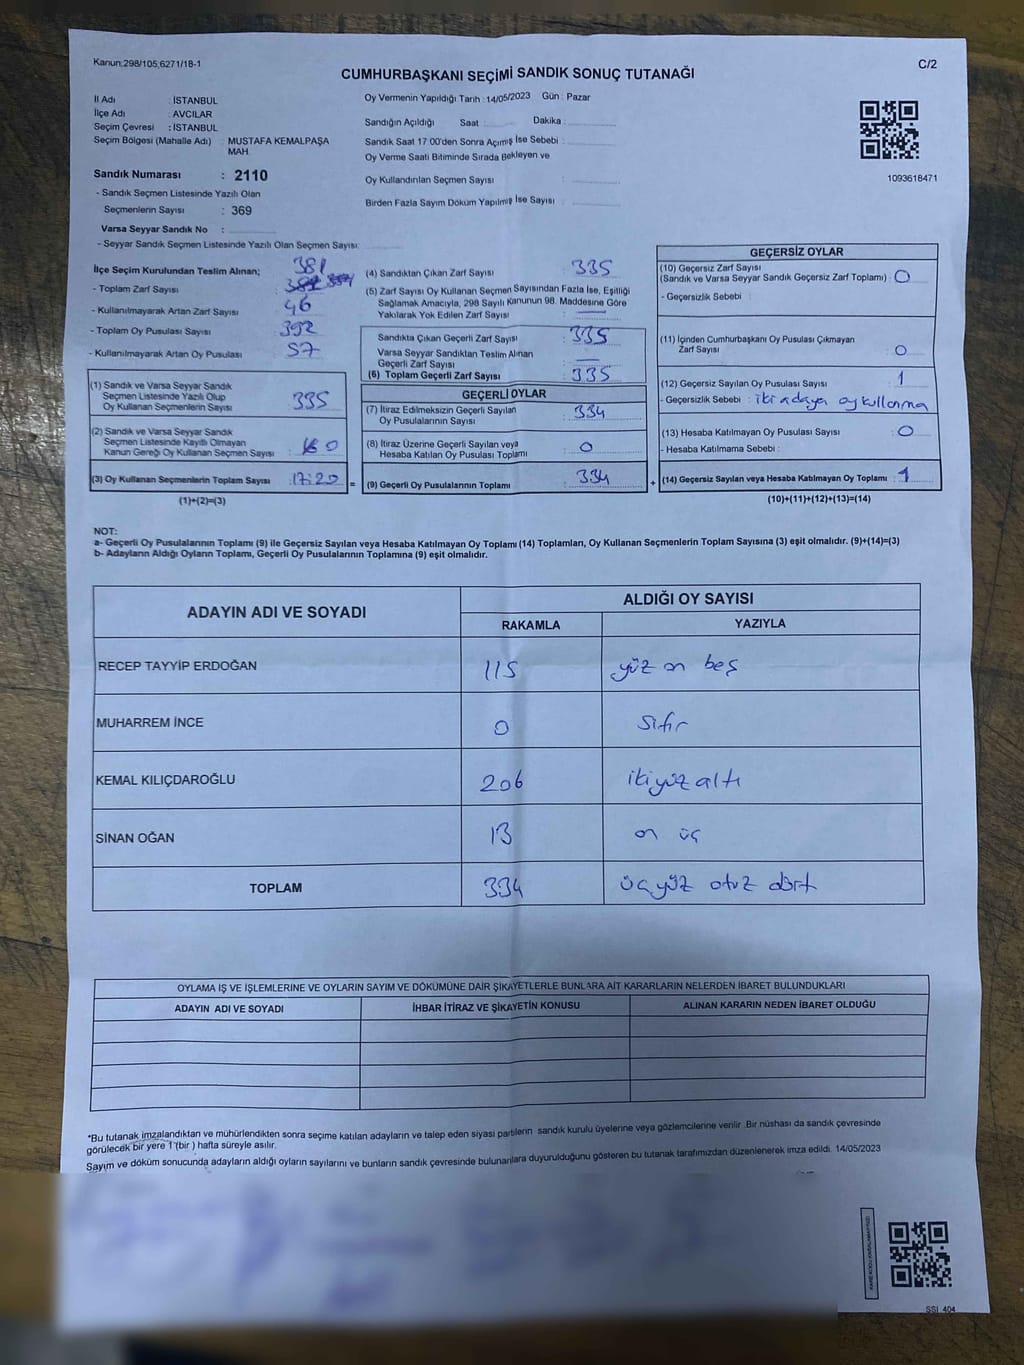 Kanun;298/105;6271/18-1
C/2
CUMHURBAŞKANI SEÇİMİ SANDIK SONUÇ TUTANAĞI
İl Adı : İSTANBUL
İlçe Adı : AVCILAR
Seçim Çevresi : İSTANBUL
Seçim Bölgesi (Mahalle Adı) : MUSTAFA KEMALPAŞA
MAH.
Sandık Numarası : 2110
- Sandık Seçmen Listesinde Yazılı Olan
Seçmenlerin Sayısı : 369
Varsa Seyyar Sandık No :
- Seyyar Sandık Seçmen Listesinde Yazılı Olan Seçmen Sayısı:
Oy Vermenin Yapıldığı Tarih : 14/05/2023 Gün : Pazar
Sandığın Açıldığı Saat : Dakika :
Sandık Saat 17:00'den Sonra Açımış İse Sebebi :
Oy Verme Saati Bitiminde Sırada Bekleyen ve
Oy Kullandırılan Seçmen Sayısı :
Birden Fazla Sayım Döküm Yapılmış İse Sayısı :
1093618471
İlçe Seçim Kurulundan Teslim Alınan; 381
- Toplam Zarf Sayısı :
- Kullanılmayarak Artan Zarf Sayısı : 46
- Toplam Oy Pusulası Sayısı : 392
- Kullanılmayarak Artan Oy Pusulası : 57
(1) Sandık ve Varsa Seyyar Sandık
Seçmen Listesinde Yazılı Olup
Oy Kullanan Seçmenlerin Sayısı : 335
(2) Sandık ve Varsa Seyyar Sandık
Seçmen Listesinde Kayıtlı Olmayan
Kanun Gereği Oy Kullanan Seçmen Sayısı : 0
(3) Oy Kullanan Seçmenlerin Toplam Sayısı : 17:20 =
(1)+(2)=(3)
(4) Sandıktan Çıkan Zarf Sayısı : 335
(5) Zarf Sayısı Oy Kullanan Seçmen Sayısından Fazla İse, Eşitliği
Sağlamak Amacıyla, 298 Sayılı Kanunun 98. Maddesine Göre
Yakılarak Yok Edilen Zarf Sayısı : —
Sandıkta Çıkan Geçerli Zarf Sayısı : 335
Varsa Seyyar Sandıktan Teslim Alınan
Geçerli Zarf Sayısı : —
(6) Toplam Geçerli Zarf Sayısı : 335
GEÇERLİ OYLAR
(7) İtiraz Edilmeksizin Geçerli Sayılan
Oy Pusulalarının Sayısı : 334
(8) İtiraz Üzerine Geçerli Sayılan veya
Hesaba Katılan Oy Pusulası Toplamı : 0
(9) Geçerli Oy Pusulalarının Toplamı : 334 +
GEÇERSİZ OYLAR
(10) Geçersiz Zarf Sayısı
(Sandık ve Varsa Seyyar Sandık Geçersiz Zarf Toplamı) : 0
- Geçersizlik Sebebi :
(11) İçinden Cumhurbaşkanı Oy Pusulası Çıkmayan
Zarf Sayısı : 0
(12) Geçersiz Sayılan Oy Pusulası Sayısı : 1
- Geçersizlik Sebebi : iki adaya oy kullanma
(13) Hesaba Katılmayan Oy Pusulası Sayısı : 0
- Hesaba Katılmama Sebebi :
(14) Geçersiz Sayılan veya Hesaba Katılmayan Oy Toplamı : 1
(10)+(11)+(12)+(13)=(14)
NOT:
a- Geçerli Oy Pusulalarının Toplamı (9) ile Geçersiz Sayılan veya Hesaba Katılmayan Oy Toplamı (14) Toplamları, Oy Kullanan Seçmenlerin Toplam Sayısına (3) eşit olmalıdır. (9)+(14)=(3)
b- Adayların Aldığı Oyların Toplamı, Geçerli Oy Pusulalarının Toplamına (9) eşit olmalıdır.
ADAYIN ADI VE SOYADI ALDIĞI OY SAYISI
RAKAMLA YAZIYLA
RECEP TAYYİP ERDOĞAN 115 yüz on beş
MUHARREM İNCE 0 sıfır
KEMAL KILIÇDAROĞLU 206 ikiyüz altı
SİNAN OĞAN 13 on üç
TOPLAM 334 üçyüz otuz dört
OYLAMA İŞ VE İŞLEMLERİNE VE OYLARIN SAYIM VE DÖKÜMÜNE DAİR ŞİKAYETLERLE BUNLARA AİT KARARLARIN NELERDEN İBARET BULUNDUKLARI
ADAYIN ADI VE SOYADI İHBAR İTİRAZ VE ŞİKAYETİN KONUSU ALINAN KARARIN NEDEN İBARET OLDUĞU
*Bu tutanak imzalandıktan ve mühürlendikten sonra seçime katılan adayların ve talep eden siyasi partilerin sandık kurulu üyelerine veya gözlemcilerine verilir .Bir nüshası da sandık çevresinde
görülecek bir yere 1 (bir ) hafta süreyle asılır.
Sayım ve döküm sonucunda adayların aldığı oyların sayılarını ve bunların sandık çevresinde bulunanlara duyurulduğunu gösteren bu tutanak tarafımızdan düzenlenerek imza edildi. 14/05/2023
SSI_404